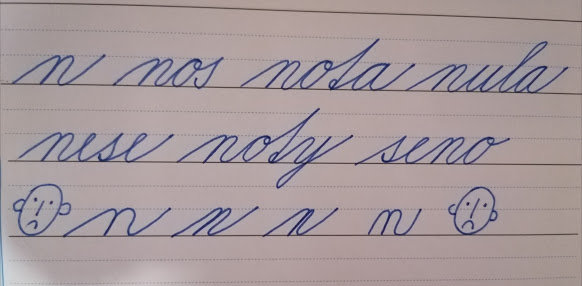 n nos nota nula
nese noty seno
n n n n